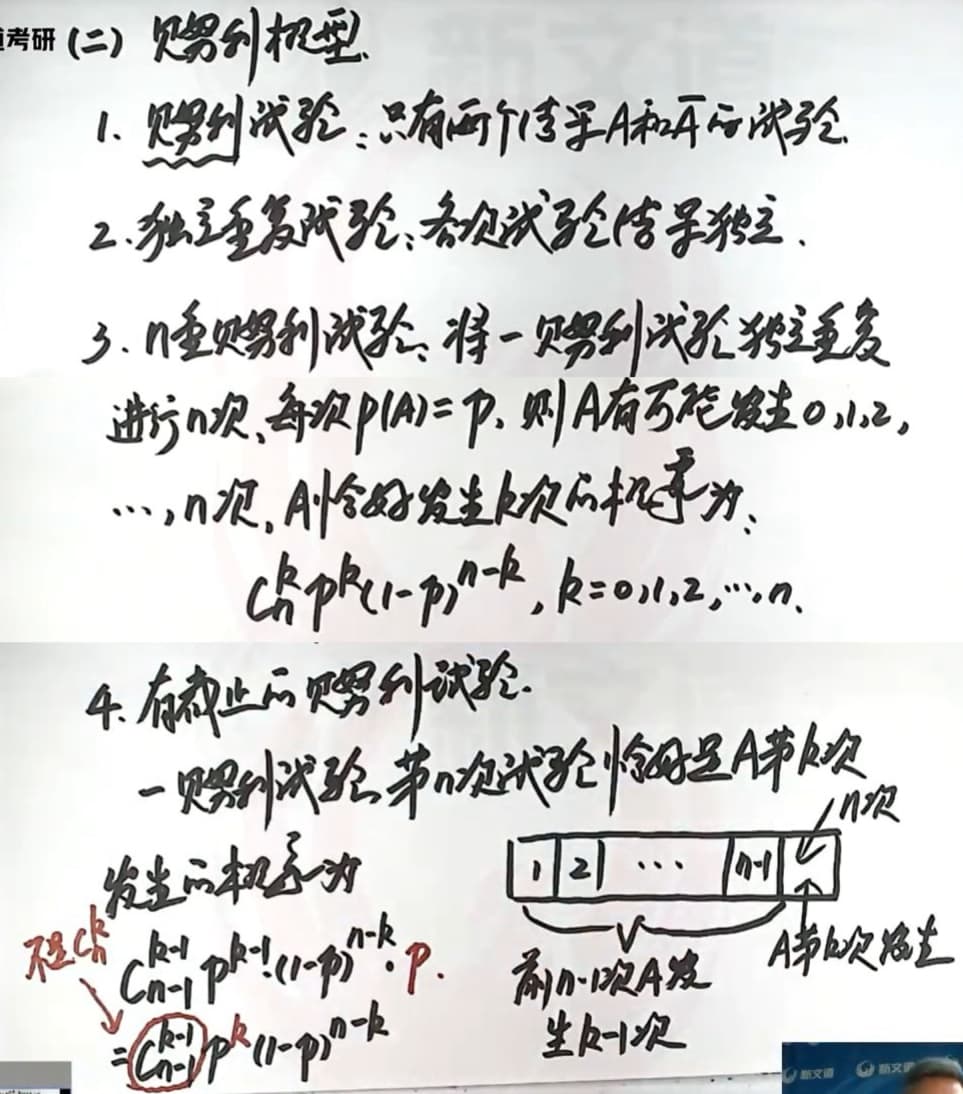 考研
(二) 贝努利概型.
1. 贝努利试验:只有两个结果A和A̅的试验.
2. 独立重复试验:各次试验结果独立.
3. n重贝努利试验:将一贝努利试验独立重复
进行n次,每次P(A)=p,则A有可能发生0,1,2,
…,n次,A恰好发生k次的概率为:
Cₙᵏpᵏ(1-p)ⁿ⁻ᵏ, k=0,1,2,…,n.
4. 有截止的贝努利试验.
一贝努利试验,第n次试验恰好是A第k次
发生的概率为
n次
1 2 … n-1
不是Cₙᵏ
Cₙ₋₁ᵏ⁻¹pᵏ⁻¹·(1-p)ⁿ⁻ᵏ·p.
=Cₙ₋₁ᵏ⁻¹pᵏ(1-p)ⁿ⁻ᵏ
前n-1次A发
生k-1次
A第k次发生
新文道
新文道